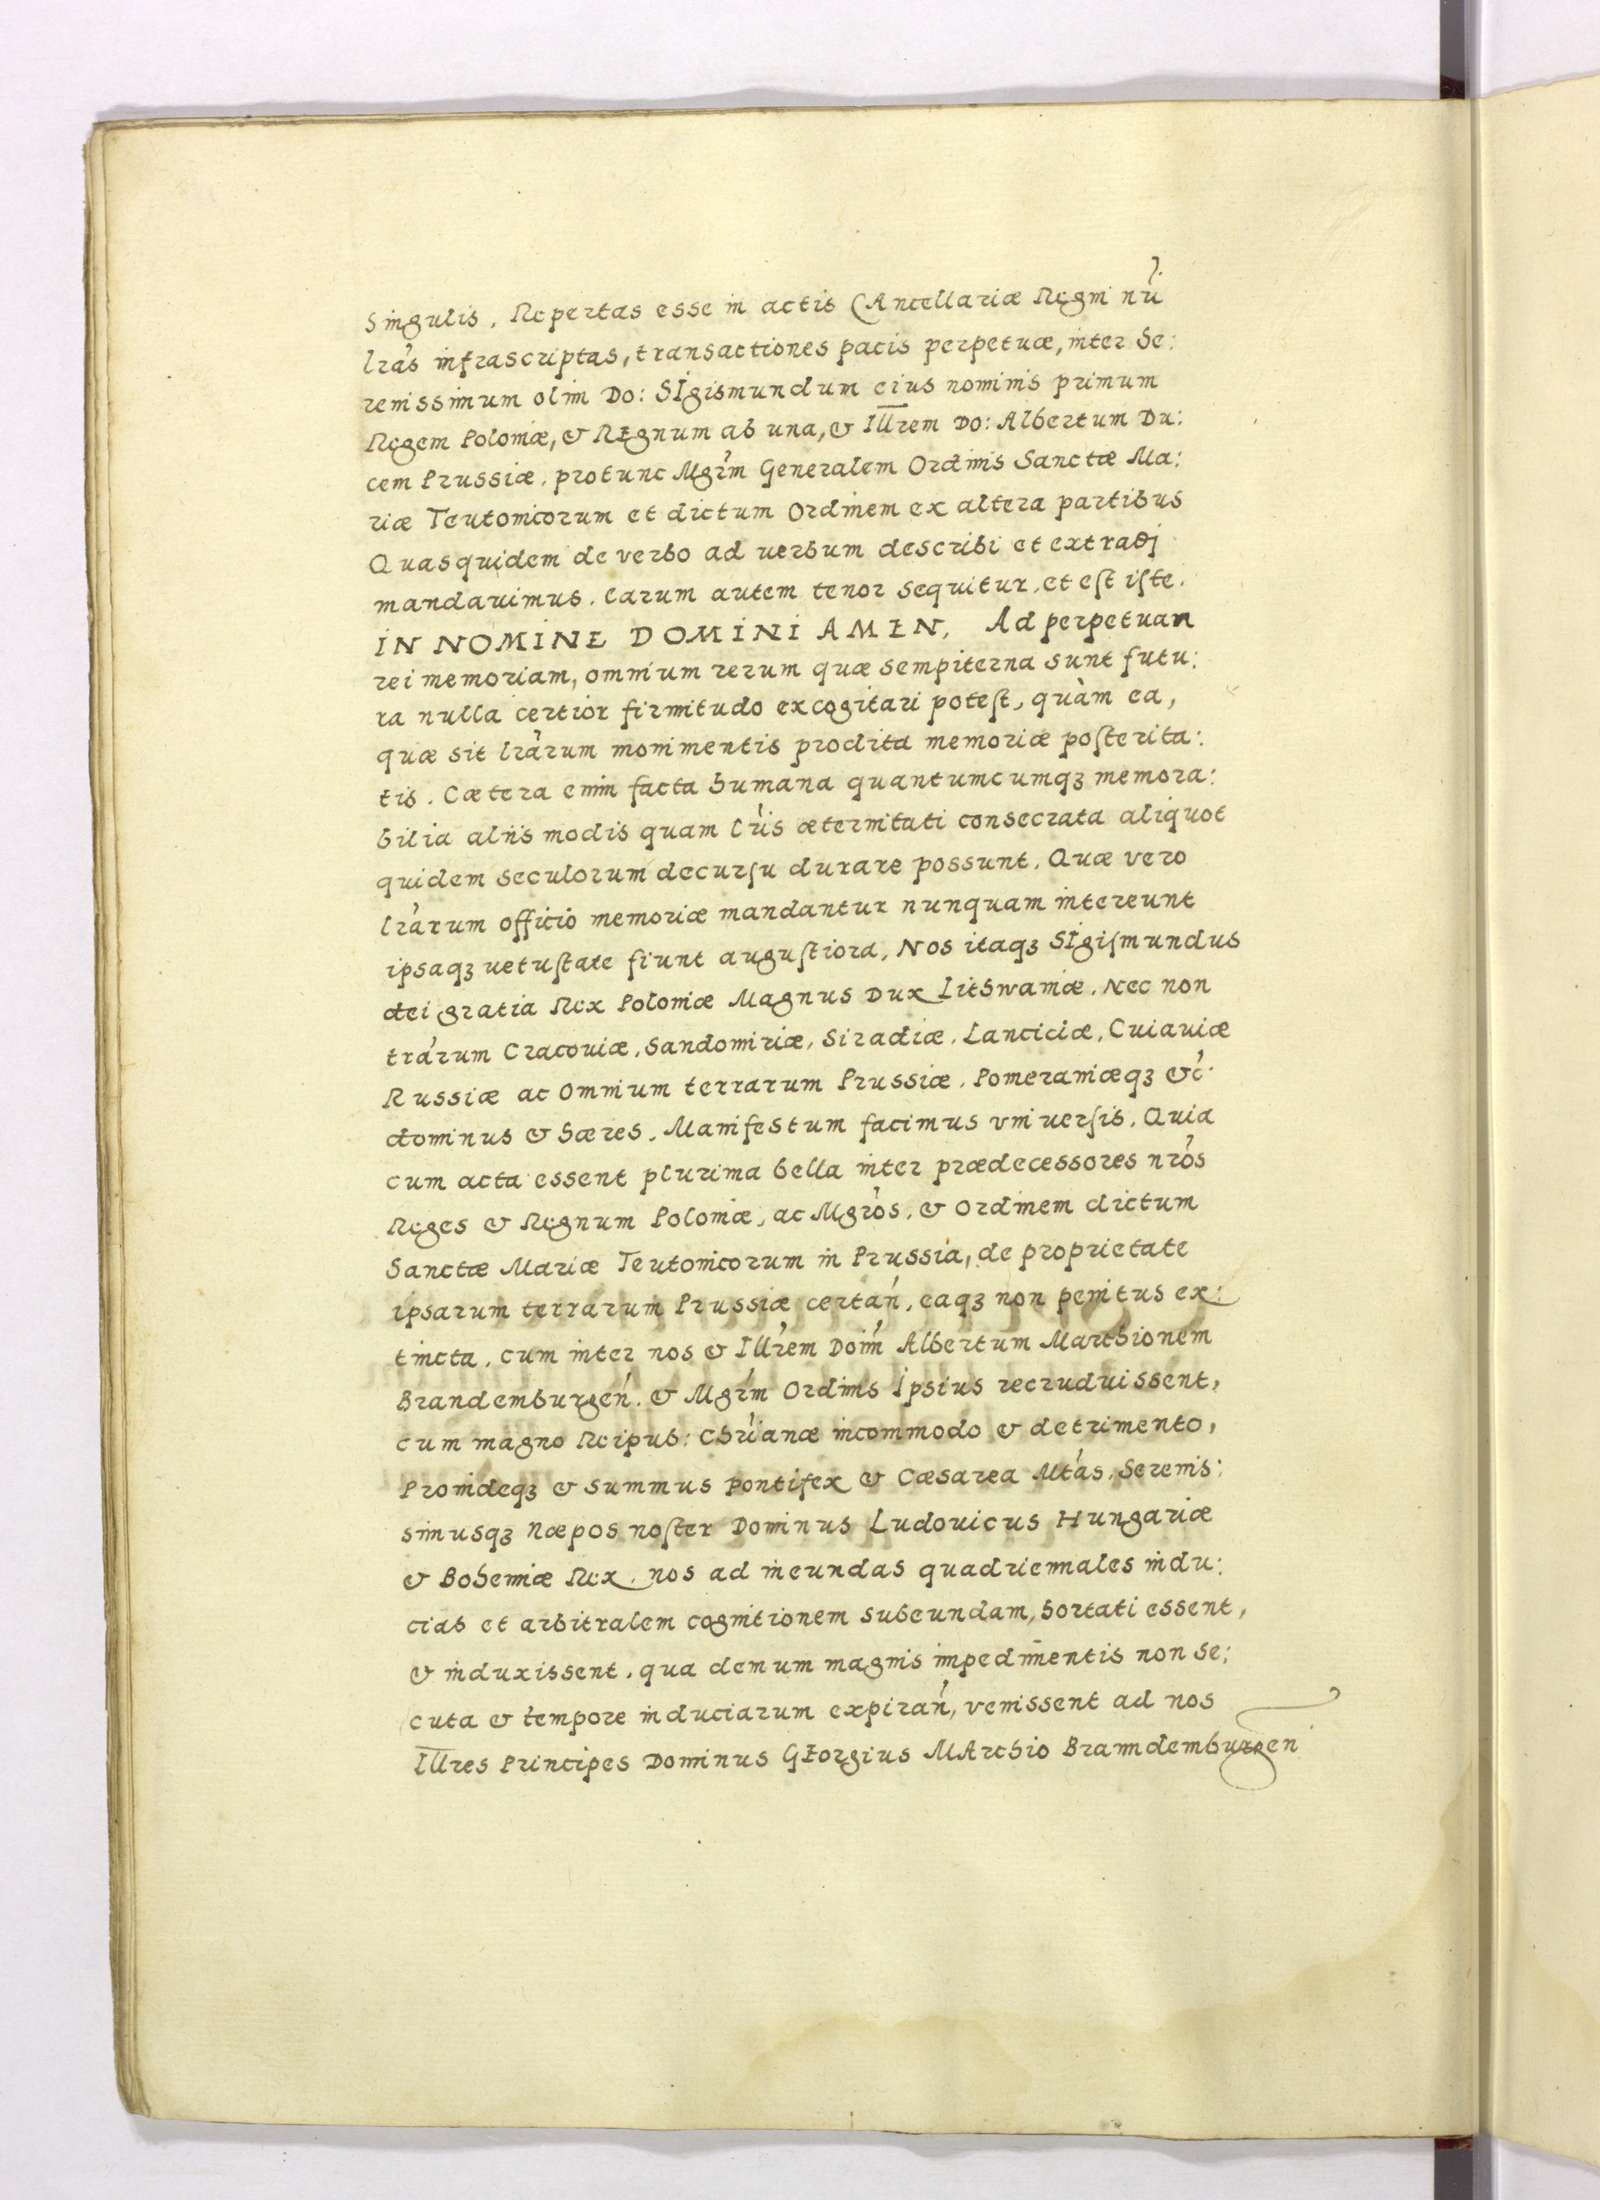 Singulis. Repertas esse in actis CAncellariæ Regni nr̃i
lrãs infrascriptas, transactiones pacis perpetuæ, inter Se:
renissimum olim Do: SIgismundum eius nominis primum
Regem Poloniæ, & REgnum ab una, & Illrem Do: Albertum Du:
cem Prussiæ, protunc Mgrm̃ Generalem Ordinis Sanctæ Ma:
riæ Teutonicorum et dictum Ordinem ex altera partibus
Quasquidem de verbo ad uerbum describi et extradj
mandauimus. Earum autem tenor sequitur, et est iste.
IN NOMINE DOMINI AMEN, Ad perpetuan
rei memoriam, omnium rerum quæ sempiterna sunt futu:
ra nulla certior firmitudo excogitari potest, quàm ea,
quæ sit lrãrum monimentis prodita memoriæ posterita:
tis. Cætera enim facta humana quantumcumqꝫ memora:
bilia aliis modis quam lr̃is æternitati consecrata aliquot
quidem seculorum decursu durare possunt. Quæ vero
lrãrum officio memoriæ mandantur nunquam intereunt
ipsaqꝫ uetustate fiunt augustiora, Nos itaqꝫ SIgismundus
dei gratia Rex Poloniæ Magnus Dux Lithwaniæ. Nec non
trãrum Cracouiæ, Sandomiriæ, Siradiæ, Lanciciæ, Cuiauiæ
Russiæ ac Omnium terrarum Prussiæ. Pomeraniæqꝫ &c̃.
dominus & hæres. Manifestum facimus vniuersis. Quia
cum acta essent plurima bella inter prædecessores nrõs
Reges & Regnum Poloniæ, ac Mgrõs, & Ordinem dictum
Sanctæ Mariæ Teutonicorum in Prussia, de proprietate
ipsarum terrarum Prussiæ certañ, eaqꝫ non penitus ex:
tincta, cum inter nos & Illrẽm Doim̃ Albertum Marchionem
Brandemburgeñ. & Mgrm̃ Ordinis Ipsius recruduissent,
cum magno Reipub: Chrĩanæ incommodo & detrimento,
Proindeqꝫ & Summus Pontifex & Cæsarea Mtãs, Serenis:
simusqꝫ Næpos noster Dominus Ludouicus Hungariæ
& Bohemiæ Rex, nos ad ineundas quadriennales indu:
cias et arbitralem cognitionem subeundam, hortati essent,
& induxissent, qua demum magnis impedim̃entis non se:
cuta & tempore induciarum expirañ, venissent ad nos
Illres Principes Dominus GEorgius MArchio Branndemburgen